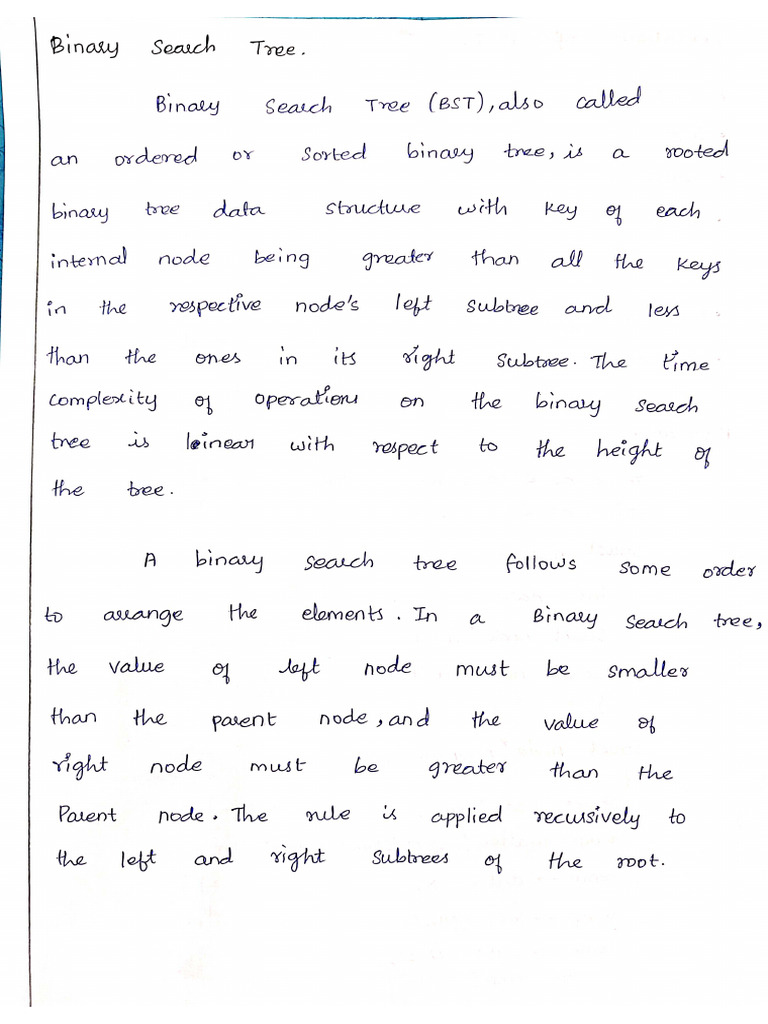 Binary Search Tree.
Binary Search Tree (BST), also called
an ordered or sorted binary tree, is a rooted
binary tree data structure with key of each
internal node being greater than all the keys
in the respective node's left subtree and less
than the ones in its right subtree. The time
complexity of operations on the binary search
tree is linear with respect to the height of
the tree.
A binary search tree follows some order
to arrange the elements. In a Binary search tree,
the value of left node must be smaller
than the parent node, and the value of
right node must be greater than the
Parent node. The rule is applied recursively to
the left and right subtrees of the root.